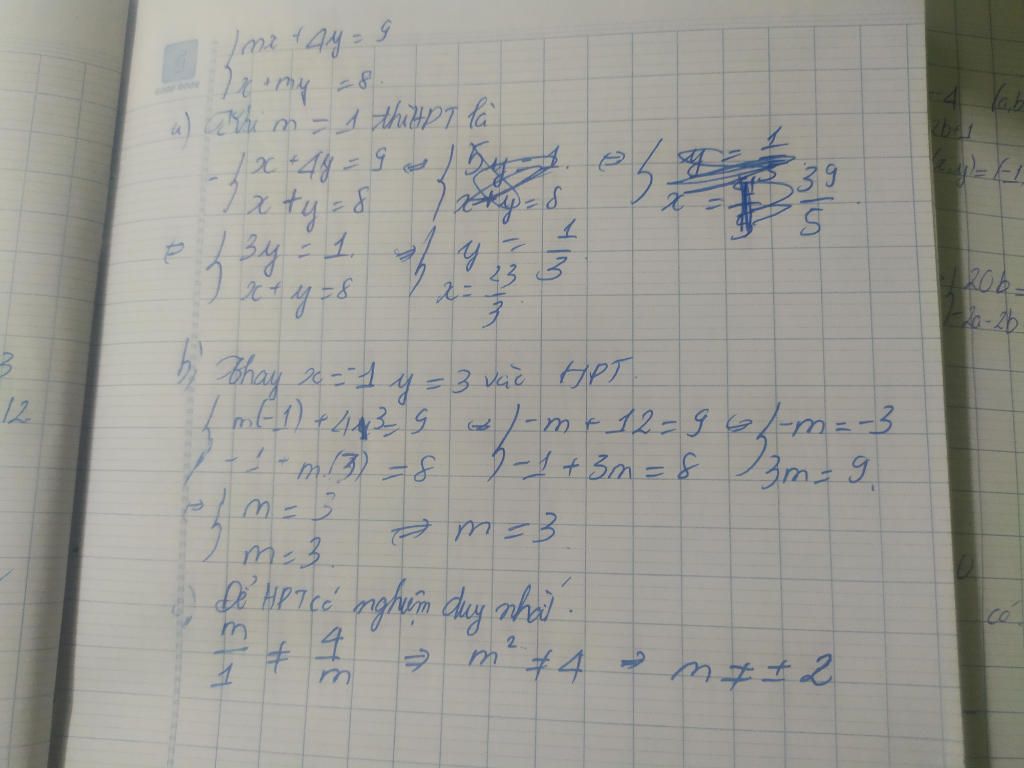 {mx + 4y = 9
{x + my = 8
a) Khi m = 1 thì HPT là
{x + 4y = 9 ⇔ {5y = 1 ⇔ {y = 1
{x + y = 8 {x + y = 8 {x = 39/5
⇔ {3y = 1 ⇔ {y = 1/3
{x + y = 8 {x = 23/3
b) Thay x = -1 y = 3 vào HPT
{m(-1) + 4.3 = 9 ⇔ {-m + 12 = 9 ⇔ {-m = -3
{-1 + m.(3) = 8 {-1 + 3m = 8 {3m = 9
⇔ {m = 3
{m = 3 ⇔ m = 3
c) Để HPT có nghiệm duy nhất.
m/1 ≠ 4/m ⇒ m² ≠ 4 ⇒ m ≠ ± 2
3
12
-4 (a,b
2b+1
(x,y) = (-1,
20b =
-2a - 2b
0
có